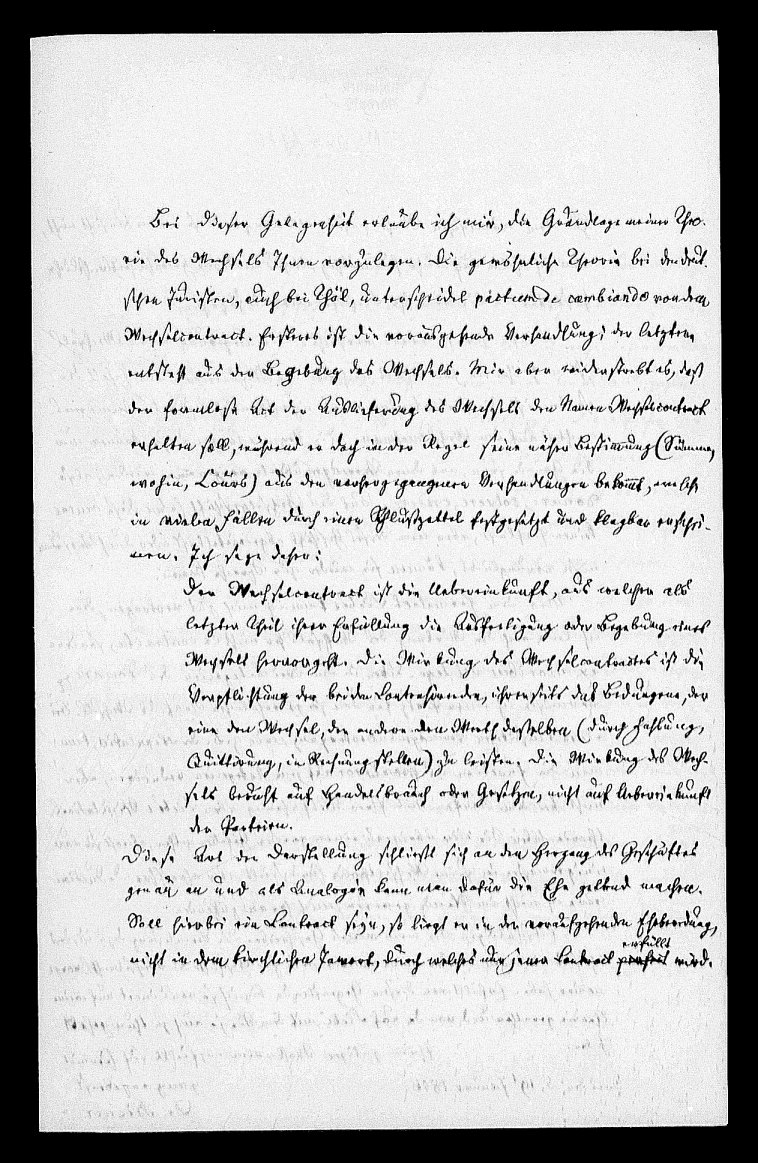 Bei dieser Gelegenheit erlaube ich mir, die Grundlage meiner Theo-
rie des Wechsels Ihnen vorzulegen. Die gewöhnliche Theorie bei den deut-
schen Juristen, auch bei Thöl, unterscheidet pactum de cambiando von dem
Wechselcontract. Ersteres ist die vorausgehende Verhandlung; der letztere
entsteht aus der Begebung des Wechsels. Mir aber widerstrebt es, daß
der formlose Act der Auslieferung des Wechsels den Namen Wechselcontract
erhalten soll, während er doch in der Regel seine näher Bestimmung (Summe,
wohin, Cours) aus den vorhergegangenen Verhandlungen bekommt, welche
in vielen Fällen durch einen Schlußzettel festgesetzt und klagbar erschei-
nen. Ich sage daher:
Der Wechselcontract ist die Uebereinkunft, aus welcher als
letzter Theil ihrer Erfüllung die Ausfertigung oder Begebung eines
Wechsels hervorgeht. Die Wirkung des Wechselcontractes ist die
Verpflichtung der beiden Contrahirenden, ihrerseits das Bedungene, der
eine den Wechsel, der andere den Werth desselben (durch Zahlung,
Quittirung, in Rechnung stellen) zu leisten. Die Wirkung des Wech-
sels beruht auf Handelsbrauch oder Gesetzen, nicht auf Uebereinkunft
der Parteien.
Diese Art der Darstellung schließt sich an den Hergang des Geschäftes
genau an und als Analogon kann man dafür die Ehe geltend machen.
Soll hierbei ein Contract seyn, so liegt er in der voraufgehenden Eheberedung,
erfüllt
nicht in dem kirchlichen Jawort, durch welches nur jener Contract perfect wird.